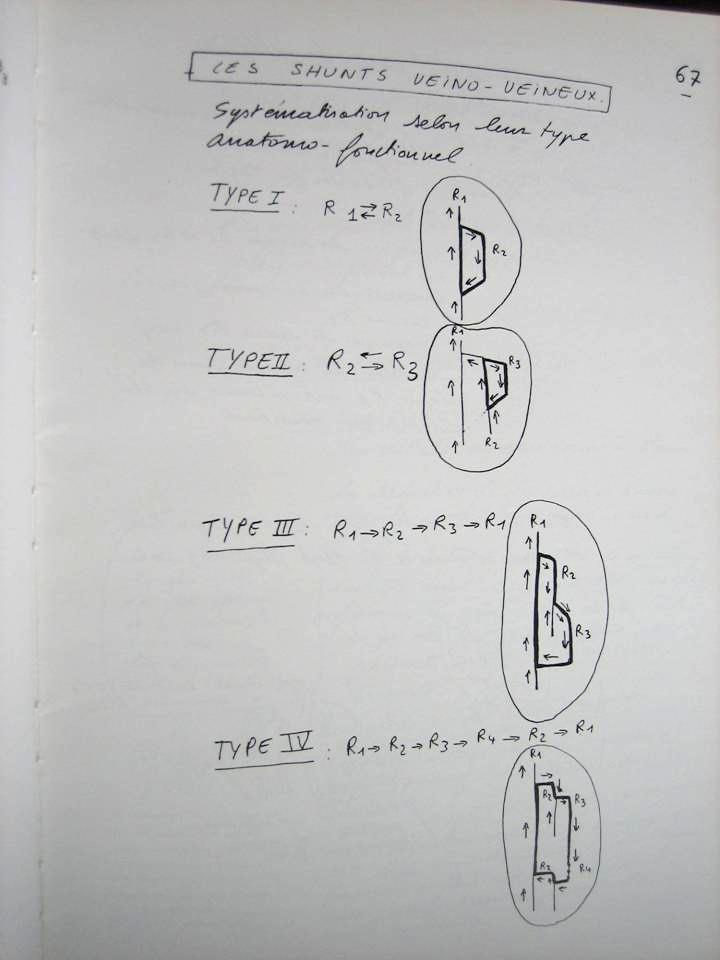 67
LES SHUNTS VEINO-VEINEUX.
Systématisation selon leur type
anatomo-fonctionnel
TYPE I : R1 ⇄ R2
R1
R2
TYPE II : R2 ⇆ R3
R1
R3
R2
TYPE III : R1 → R2 → R3 → R1
R1
R2
R3
TYPE IV : R1 → R2 → R3 → R4 → R2 → R1
R1
R2 R3
R2 R4